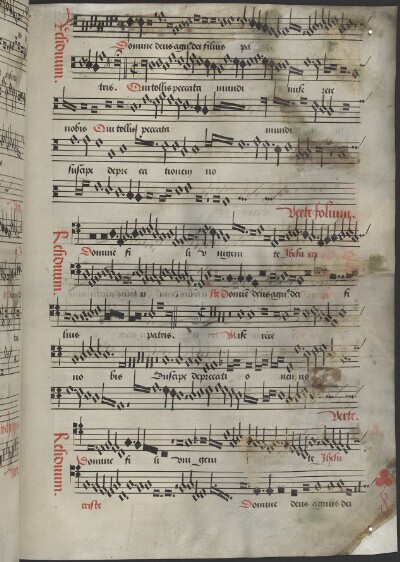 Residuum.
Domine deus agnus dei filius pa
tris. Qui tollis peccata mundi mise rere
nobis Qui tollis peccata mundi
suscipe depre ca tionem no
Verte folium.
Residuum.
Domine fi li v nigeni te Jhesu
ste Domine deus agnus dei fi
lius patris. Mise rere
no bis Suscipe deprecati o nem no
Verte.
Residuum.
Domine fi li vni geni te Jhesu
criste Domine deus agnus dei